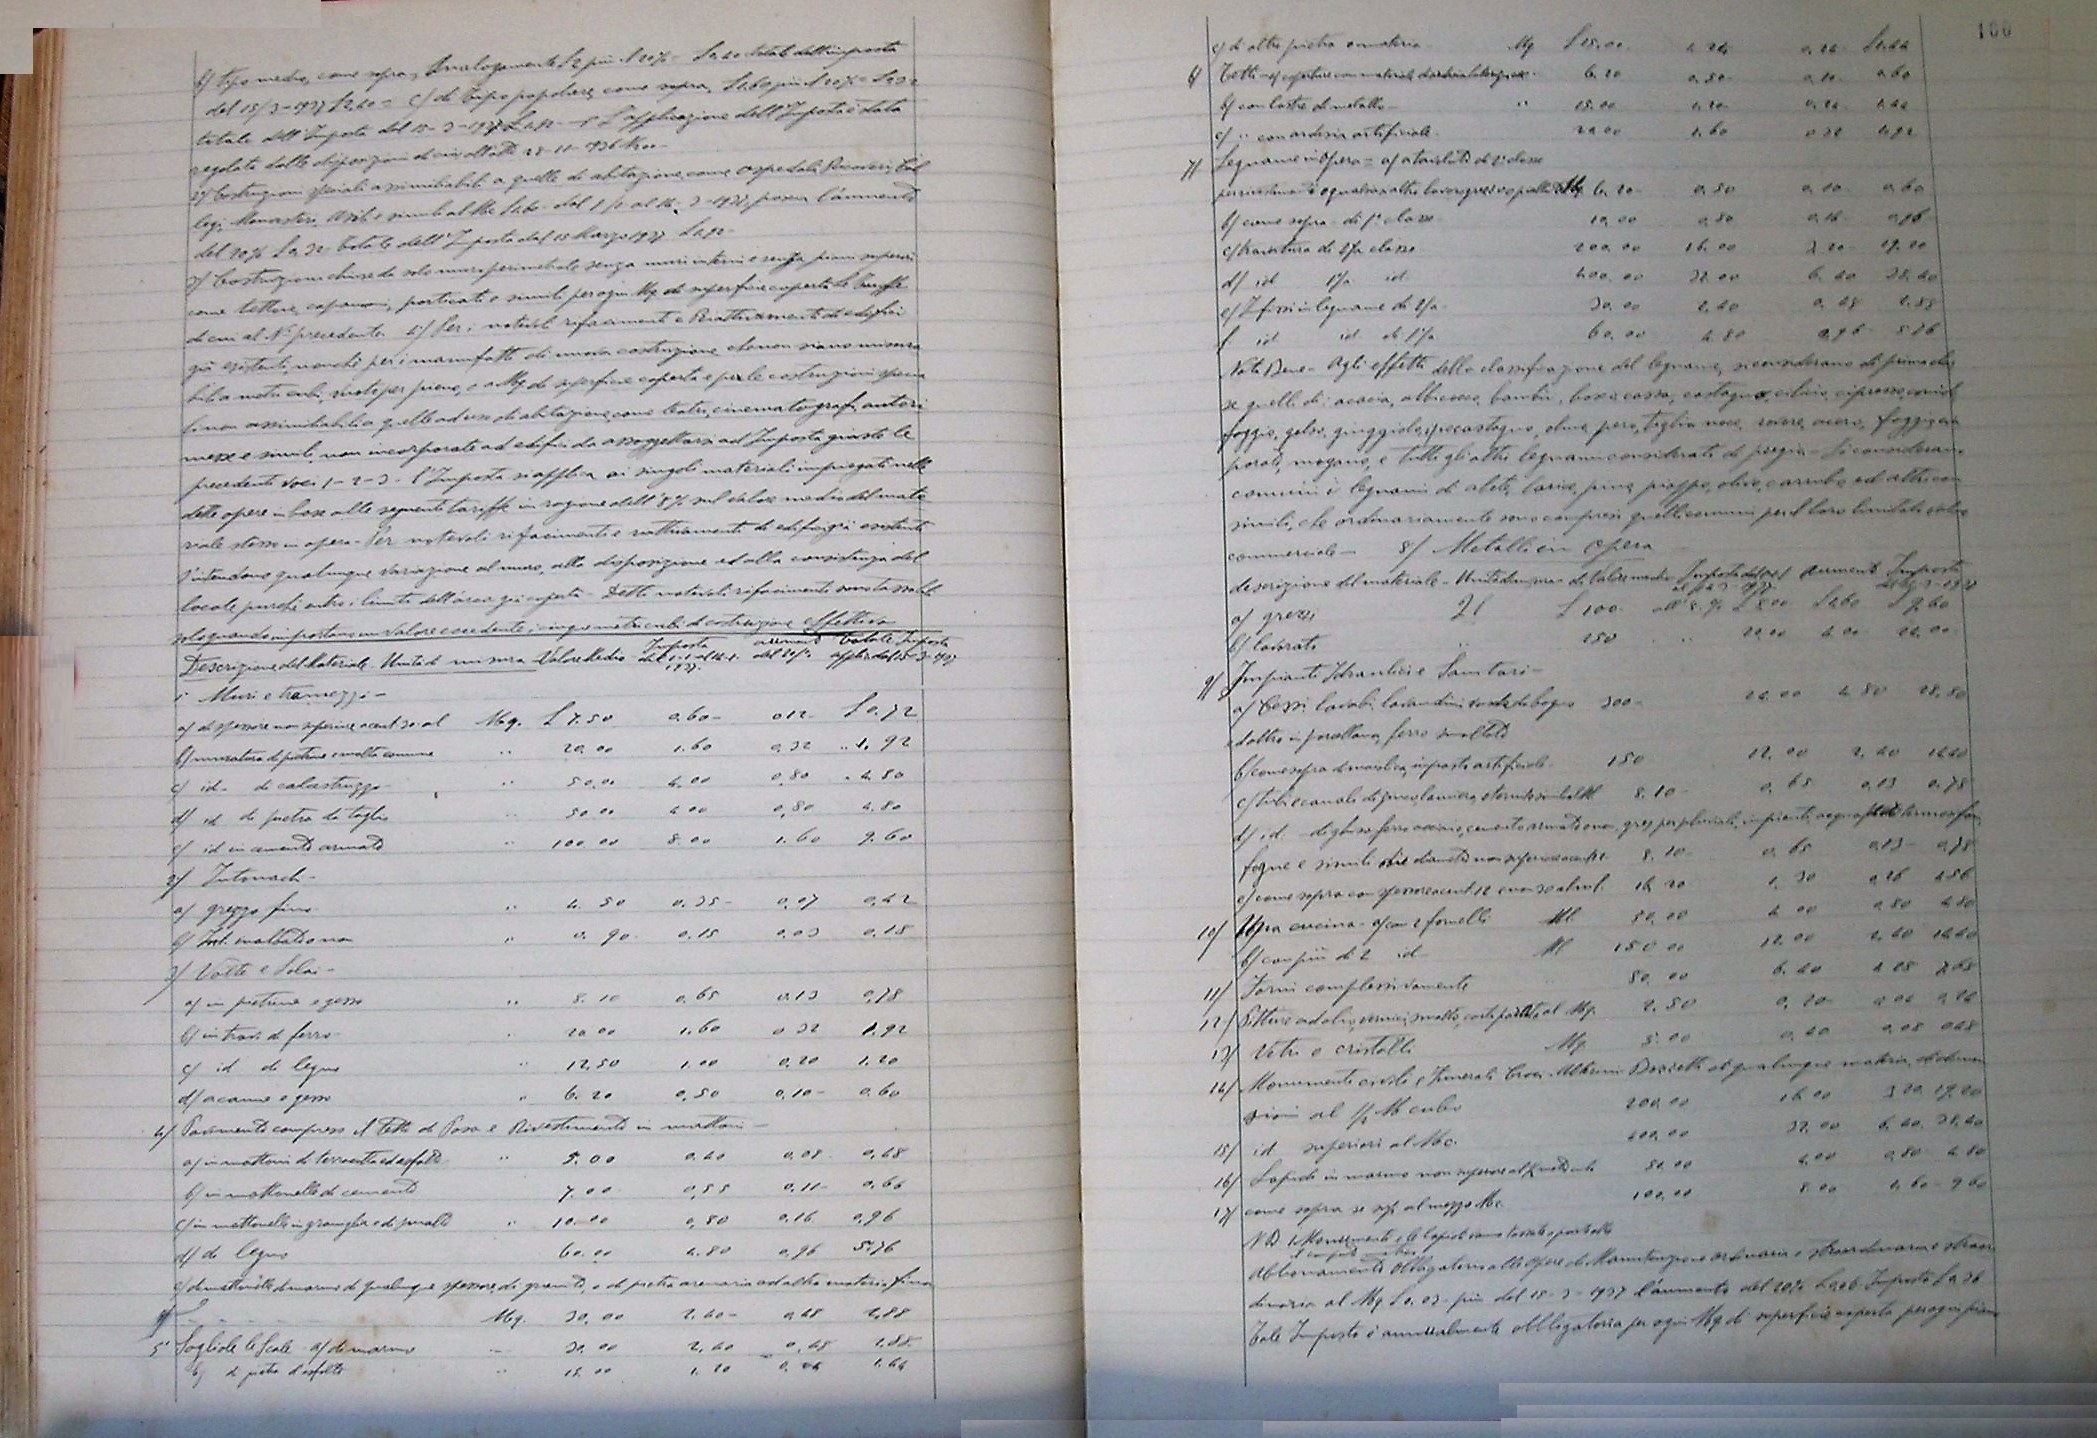 b/ Tipo medio, come sopra, Analogamente £ 2 più il 20% = £ 2,40 totale dell'imposta
del 15/3-1937 £ 2,40 = c/ di Tipo popolare, come sopra, £ 1.60 più il 20% = £ 0,32
totale dell'Imposta dal 15-3-1937 £ 1,92 - L'applicazione dell'Imposta è stata
regolata dalle disposizioni di cui 28-11-1936
2°/ Costruzioni speciali assimilabili a quelle di abitazione, come ospedali, Ricoveri, Col
legi, Monasteri, Asili e simili al Mc £ 1.60 dal 1/1 al 14-3-1937, poscia l'aumento
del 20% £ 0,32 totale dell'Imposta dal 15 Marzo 1937 £ 1,92 -
3/ Costruzioni chiuse da solo muro perimetrale senza muri interni e senza piani superiori
come tettoie, capannoni, porticati e simili per ogni Mq di superficie coperta le Tariffe
di cui al N° precedente. 4/ Per i notevoli rifacimenti e Riattivamenti di edifici
già esistenti, nonchè per i manufatti di nuova costruzione che non siano misura
bili a metri cubi, vuoto per pieno, o a Mq di superficie coperta e per le costruzioni specia
li non assimilabili a quelle ad uso di abitazione, come teatri, cinematografi, autori
messe e simili, non incorporate ad edifici da assoggettarsi ad Imposta giusto le
precedenti voci 1-2-3 - l'Imposta si applica ai singoli materiali impiegati nelle
dette opere in base alle seguenti tariffe in ragione dell'8% sul valore medio del mate
riale stesso in opera - Per notevoli rifacimenti e riattamenti di edifici già esistenti
s'intendono qualunque variazione al muro, alla disposizione ed alla consistenza del
locale purchè entro i limiti dell'area già coperta - Detti notevoli rifacimenti sono tassabili
solo quando importano un valore eccedente i cinque metri cubi di costruzione effettiva
Descrizione del Materiale - Unità di misura - Valore Medio - Imposta dal 1-1 al 14-3 1937 - aumento del 20% - Totale Imposta applic. dal 15-3-1937
1° Muri e tramezzi -
a/ di spessore non superiore a cent. 30 al Mq. £ 7.50 0.60 - 0.12 - £ 0,72
b/ muratura di pietrame e malta comune " 20,00 1.60 0,32 " 1,92
c/ id - di calcestruzzo " 50.00 4.00 0,80 " 4.80
d/ id di pietra da taglio " 50.00 4.00 0,80 4.80
e/ id in cemento armato " 100.00 8.00 1.60 9.60
2/ Intonachi -
a/ grezzo fino " 4.50 0.35 - 0,07 0,42
b/ Int. 0.90 - 0.15 0.03 0.18
3/ Volte e Solai -
a/ in pietrame e gesso " 8.10 0,65 0.13 0,78
b/ in travi di ferro - " 20.00 1.60 0 32 1.92
c/ id di legno " 12,50 1.00 0,20 1.20
d/ a canne e gesso " 6.20 0,50 0,10 - 0.60
4/ Pavimenti compreso il letto di Posa e Rivestimenti in mattoni -
a/ in mattoni di terracotta ed asfalto " 5.00 0,40 0,08 0,48
b/ in mattonelle di cemento 7.00 0,55 0,11 - 0,66
c/ in mattonelle in graniglia e di " 10.00 0,80 0,16 0,96
d/ di legno 60.00 4.80 0,96 5.76
e/ di mattonelle di marmo di qualunque spessore, di granito, o di pietra arenaria ed altra materia fina
Mq. 30,00 2.40 - 0,48 2,88
5° Soglie delle Scale - a/ di marmo 30.00 2,40 0,48 2.88
b/ di pietra d'asfalto 15.00 1.20 0,24 1.44
100
c/ di altra pietra o materia Mq £ 15,00 1.20 0,24 £ 1.44
6/ Tetti - a/ coperture con materiale di 6.20 0,50 0,10 0.60
b/ con lastre di metallo - " 15.00 1,20 0,24 1,44
c/ " con ardesia artificiale 20.00 1.60 0.32 1.92
7/ Legname in Opera = a/ a tavolato di 2° classe
pavimenti e qualsiasi altro lavoro Mq 6.20 - 0,50 0,10 0,60
b/ come sopra di 1° classe 10,00 0,80 0,16 0,96
c/ travatura di 2/a classe 200,00 16.00 3.20 - 19.20
d/ id 1/a id. 400.00 32.00 6.40 38,40
e/ Infissi in legname di 2/a 30.00 2,40 0,48 2.88
f id id di 1/a 60.00 4.80 0,96 5.76
Nota Bene - Agli effetti della classificazione del legname, si considerano di prima clas
se quelli di: acacia, albicocco, bambù, castagno, ciliegio, cipresso,
faggio, gelso, giuggiolo, ippocastagno, olmo, pero, tiglio, noce, rovere, acero,
mogano, e tutti gli altri legnami considerati di pregio - Si considerano
comuni i legnami di abete, larice, pino, pioppo, olivo, carrubo ed altri con
simili, che ordinariamente sono compresi quelli comuni per il loro limitato valore
commerciale - 8/ Metalli in Opera
descrizione del materiale - Unità di misura - Valore medio - Imposta - aumento - Imposta
a/ grezzi Ql £ 100 - all'8% £ 8.00 £ 1,60 £ 9,60
b/ lavorati " 250 " 20,00 4.00 24,00
9/ Impianti Idraulici e Sanitari -
a/ Cessi, lavabi, lavandini, vasche da bagno 300 - 24,00 4.80 28.80
ed altro in porcellana, ferro smaltato
b/ come sopra di maiolica, impasto artificiale - 150 12.00 2,40 14.40
c/ tubi e canali di zinco, lamiera, eternit e simili al Ml 8.10 - 0,65 0,13 0,78
d/ id. di ghisa, ferro, acciaio, cemento armato o non, gres, per pluviali, impianti, acquedotti, termosifoni,
fogne e simili del diametro non superiore a cent. 8.10 - 0,65 0,13 - 0,78
e/ come sopra con spessore a cent 12 e non 30 al ml. 16,20 1.30 0,26 1.56
10/ cucina - a/ con 2 fornelli Ml 50,00 4.00 0,80 4.80
b/ con più di 2 id - Ml 150.00 12.00 2,40 14,40
11/ Forni complessivamente 80.00 6.40 1.28 7,68
12/ Pitture ad olio, vernici, smalto, carta parati, al Mq. 2.50 0,20 0,04 0,24
13/ Vetri e cristalli Mq. 5.00 0,40 0,08 0,48
14/ Monumenti civili e Funerali, Croci, di qualunque materia, di dimen
sioni al 1/2 M cubo 200,00 16.00 3.20 19.20
15/ id superiori al Mc. 400,00 32.00 6,40 38,40
16/ Lapidi in marmo non superiori al 50.00 4.00 0,80 4.80
17/ come sopra se sup. al mezzo Mc. 100,00 8.00 1.60 - 9.60
N.B. I Monumenti e le lapidi sono
Abbonamento obbligatorio alle opere di Manutenzione ordinaria e straordinaria e straor
dinaria al Mq £ 0.03 - più dal 15-3-1937 l'aumento del 20% Imposta
Tale Imposta è annualmente obbligatoria per ogni Mq di superficie coperta per ogni piano